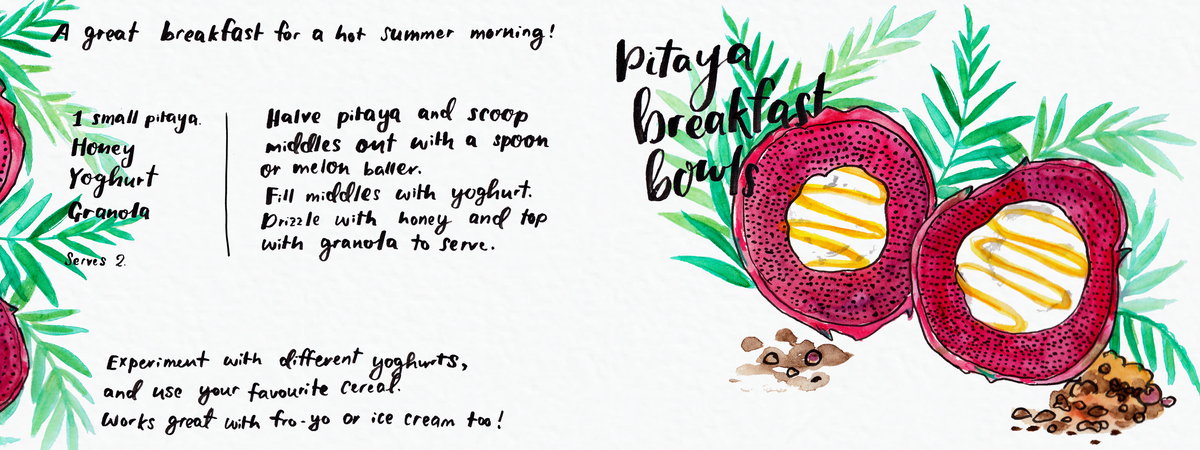 A great breakfast for a hot summer morning!
1 small pitaya.
Honey
Yoghurt
Granola
Serves 2.
Halve pitaya and scoop
middles out with a spoon
or melon baller.
Fill middles with yoghurt.
Drizzle with honey and top
with granola to serve.
Experiment with different yoghurts,
and use your favourite cereal.
Works great with fro-yo or ice cream too!
Pitaya
breakfast
bowls